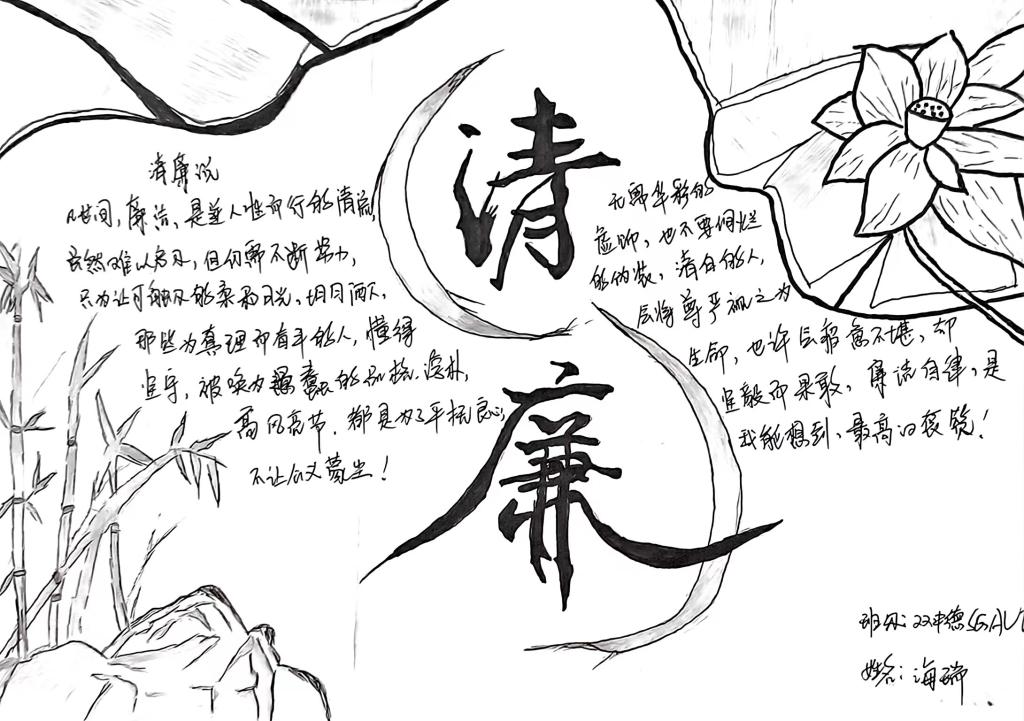 清廉
清廉说
人世间，廉洁，是登人性而行的清流
言然难以启及，但仍需不断努力，
只为让可触及的柔和日光，明月洒入，
那些为真理而奋斗的人，懂得
坚守，被唤为 的 淳朴，
高风亮节，都是为了平抚良心
不让公义蒙尘！
无需华彩的
虚饰，也不要绚烂
的伪装，清白的人，
会将尊严视之为
生命，也许会 不堪，却
坚毅而果敢，廉洁自律，是
我能想到，最高的褒赞！
班级：22中德SGAV
姓名：海瑞